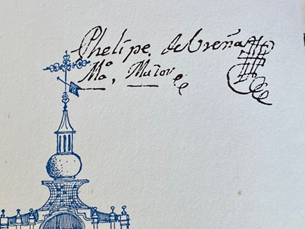 Phelipe de Ureña
Mº, Maior